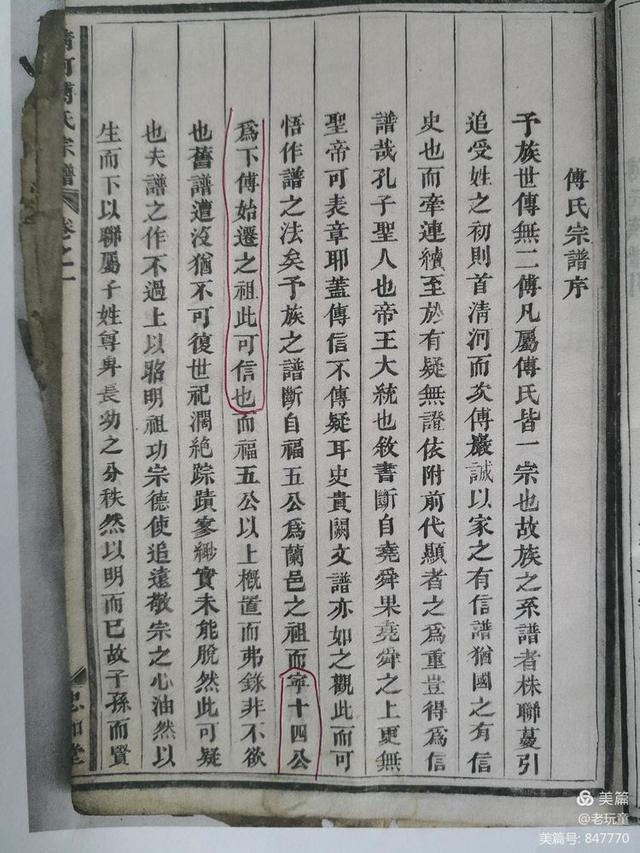 傅氏宗譜序
予族世傳無二傅凡屬傅氏皆一宗也故族之系譜者株聯蔓引
追受姓之初則首清河而次傅巖誠以家之有信譜猶國之有信
史也而牽連續至於有疑無證依附前代顯者之爲重豈得爲信
譜哉孔子聖人也帝王大統也敘書斷自堯舜果堯舜之上更無
聖帝可表章耶蓋傳信不傳疑耳史貴闕文譜亦如之觀此而可
悟作譜之法矣予族之譜斷自福五公爲蘭邑之祖而寧十四公
爲下傅始遷之祖此可信也而福五公以上槪置而弗錄非不欲
也舊譜遭沒猶不可復世祀濶絶踪蹟寥緲實未能脫然此可疑
也夫譜之作不過上以昭明祖功宗德使追遠敬宗之心油然以
生而下以聯屬子姓尊卑長幼之分秩然以明而已故子孫而賢
清河傅氏宗譜 卷之一
美篇
@老玩童
美篇号: 847770